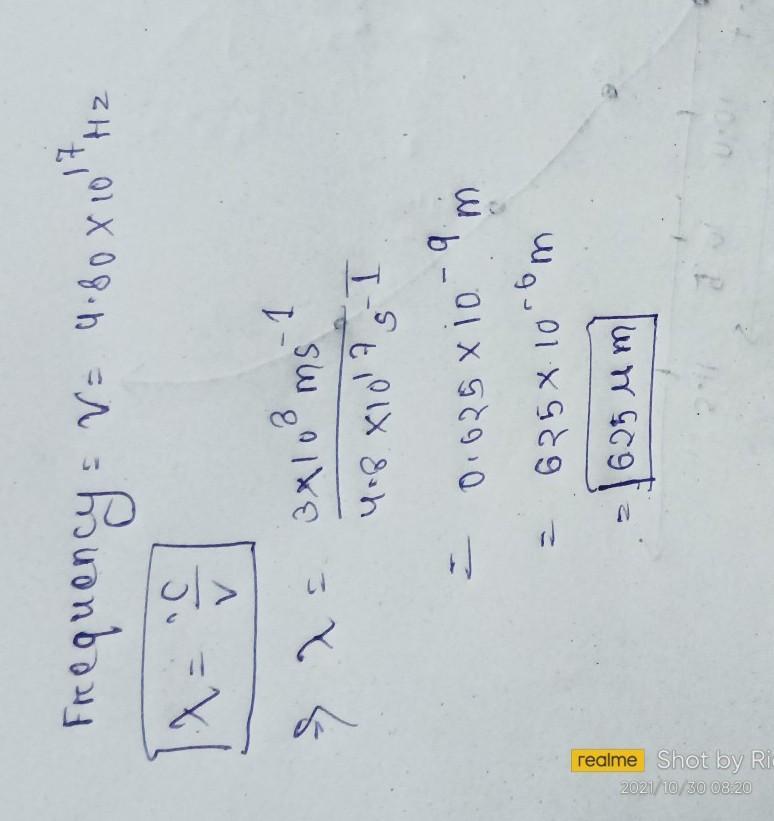 Frequency = ν = 4.80 × 10¹⁷ Hz
λ = c/ν
⇒ λ = 3×10⁸ ms⁻¹ / 4.8 ×10¹⁷ s⁻¹
= 0.625 × 10⁻⁹ m
= 625 × 10⁻⁶ m
= 625 μm
realme Shot by Ri
2021/10/30 08:20